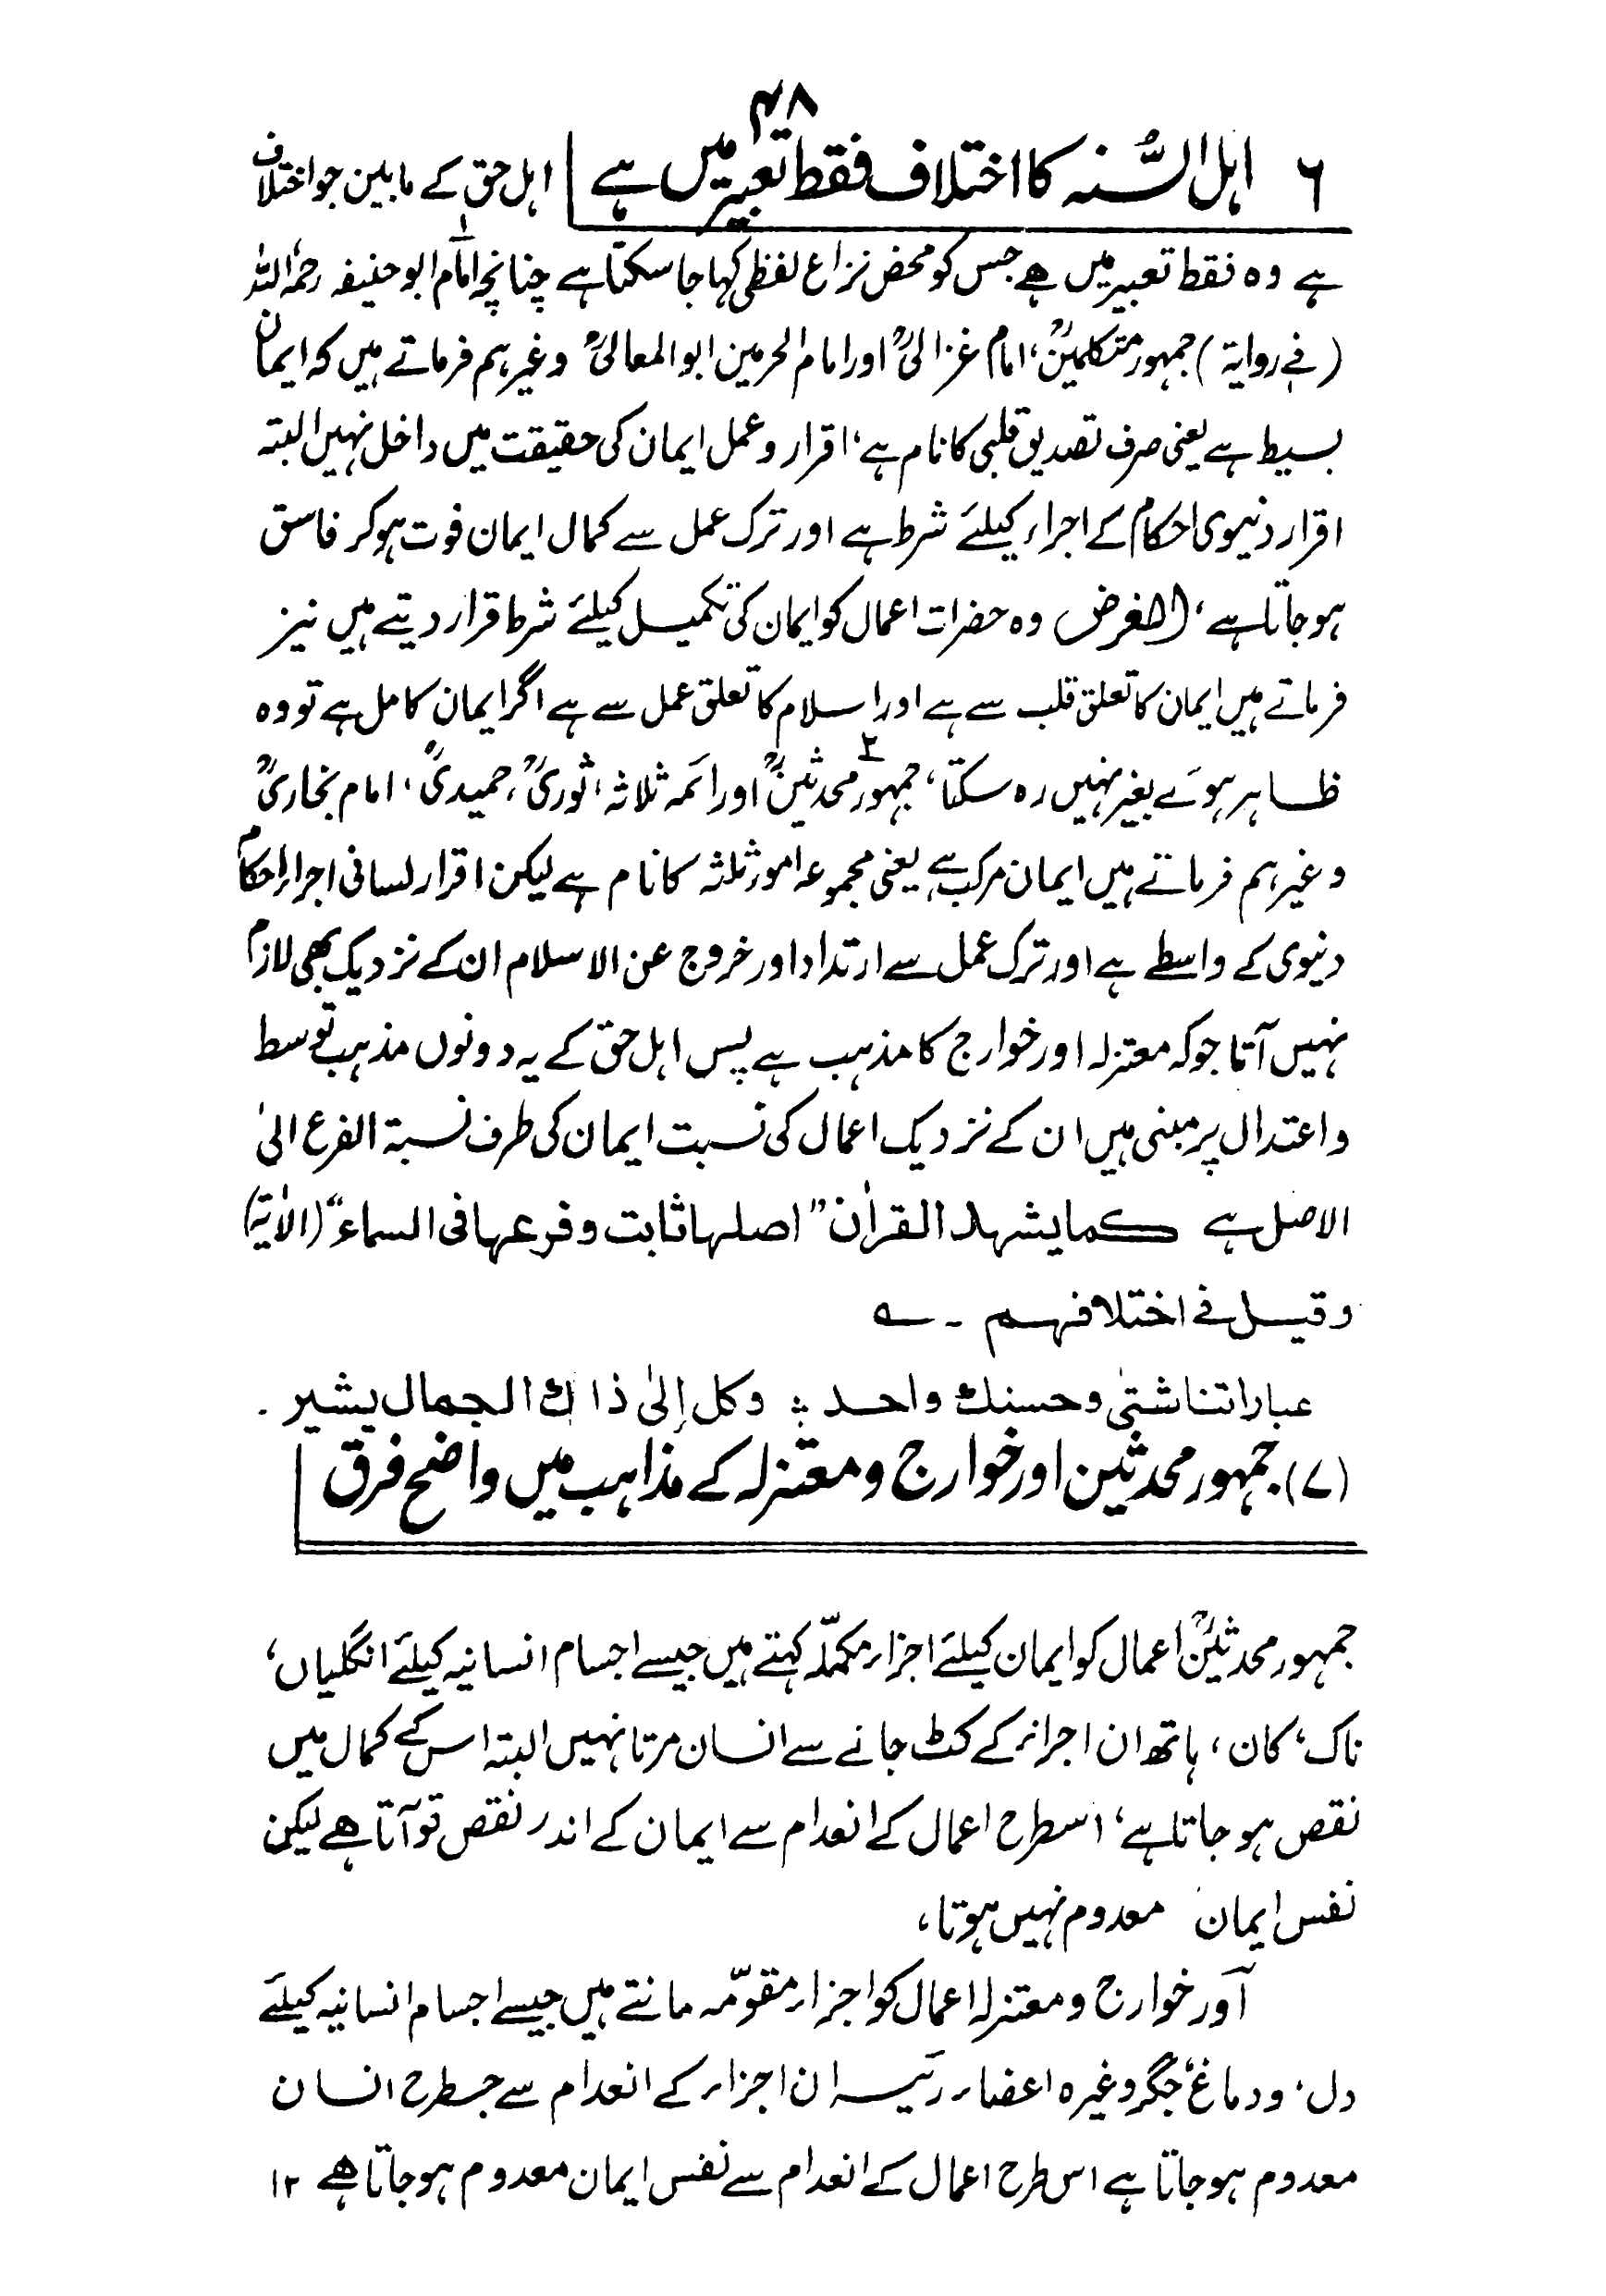 ۴۸
۶ اہل السُّنہ کا اختلاف فقط تعبیر میں ہے | اہل حق کے مابین جو اختلاف
ہے وہ فقط تعبیر میں ہے جس کو محض نزاع لفظی کہا جا سکتا ہے چنانچہ ۱ امام ابو حنیفہ رحمہ اللہ
(فی روایۃ) جمہور متکلمینؒ، امام غزالیؒ اور امام الحرمین ابو المعالیؒ وغیرہم فرماتے ہیں کہ ایمان
بسیط ہے یعنی صرف تصدیق قلبی کا نام ہے، اقرار وعمل ایمان کی حقیقت میں داخل نہیں البتہ
اقرار دنیوی احکام کے اجراء کیلئے شرط ہے اور ترک عمل سے کمال ایمان فوت ہو کر فاسق
ہو جاتا ہے، الغرض وہ حضرات اعمال کو ایمان کی تکمیل کیلئے شرط قرار دیتے ہیں نیز
فرماتے ہیں ایمان کا تعلق قلب سے ہے اور اسلام کا تعلق عمل سے ہے اگر ایمان کامل ہے تو وہ
ظاہر ہوئے بغیر نہیں رہ سکتا، ۲ جمہور محدثینؒ اور ائمہ ثلاثہ، ثوریؒ، حمیدیؒ، امام بخاریؒ
وغیرہم فرماتے ہیں ایمان مرکب ہے یعنی مجموعہ امور ثلثہ کا نام ہے لیکن اقرار لسانی اجراء احکام
دنیوی کے واسطے ہے اور ترک عمل سے ارتداد اور خروج عن الاسلام ان کے نزدیک بھی لازم
نہیں آتا جو کہ معتزلہ اور خوارج کا مذہب ہے پس اہل حق کے یہ دونوں مذہب توسط
واعتدال پر مبنی ہیں ان کے نزدیک اعمال کی نسبت ایمان کی طرف نسبۃ الفرع الیٰ
الاصل ہے کما یشہد القراٰن "اصلہا ثابت وفرعہا فی السماء" (الاٰیۃ)
وقیل فی اختلافہم ۔ ؎
عباراتنا شتیٰ وحسنك واحد ؛ وکل إلیٰ ذاك الجمال یشیر .
(۷) جمہور محدثین اور خوارج ومعتزلہ کے مذاہب میں واضح فرق
جمہور محدثینؒ اعمال کو ایمان کیلئے اجزاء مکمّلہ کہتے ہیں جیسے اجسام انسانیہ کیلئے انگلیاں،
ناک، کان، ہاتھ ان اجزاء کے کٹ جانے سے انسان مرتا نہیں البتہ اس کے کمال میں
نقص ہو جاتا ہے، اسطرح اعمال کے انعدام سے ایمان کے اندر نقص تو آتا ہے لیکن
نفس ایمان معدوم نہیں ہوتا،
اور خوارج ومعتزلہ اعمال کو اجزاء مقوّمہ مانتے ہیں جیسے اجسام انسانیہ کیلئے
دل، ودماغ، جگر وغیرہ اعضاء رئیسہ ان اجزاء کے انعدام سے جسطرح انسان
معدوم ہو جاتا ہے اس طرح اعمال کے انعدام سے نفس ایمان معدوم ہو جاتا ہے ۱۲